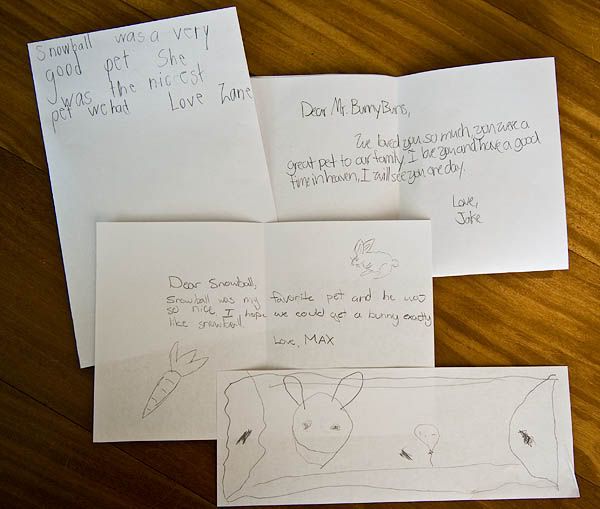 Snowball was a very
good pet She
was the nicest
pet we had Love Zane
Dear Mr. BunnyBuns,
We loved you so much, you were a
great pet to our family. I love you and have a good
time in heaven, I will see you one day.
Love,
Jake
Dear Snowball,
Snowball was my favorite pet and he was
so nice I hope we could get a bunny exactly
like snowball.
Love, MAX